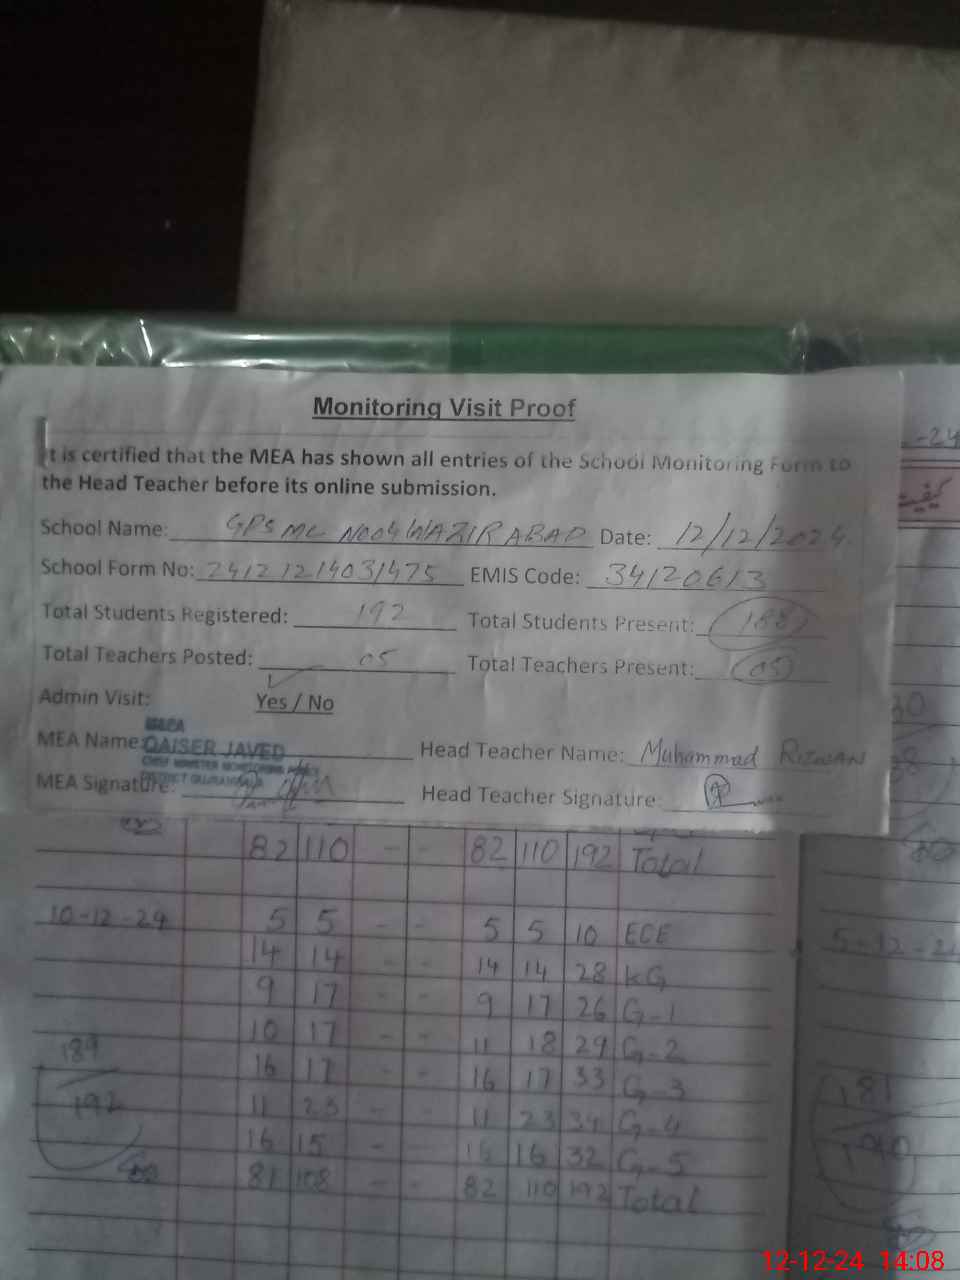 Monitoring Visit Proof
It is certified that the MEA has shown all entries of the School Monitoring Form to
the Head Teacher before its online submission.
School Name: GPS MC NO04 WAZIRABAD Date: 12/12/2024
School Form No: 24121214031475 EMIS Code: 34120613
Total Students Registered: 192 Total Students Present: 188
Total Teachers Posted: 05 Total Teachers Present: 05
Admin Visit: Yes / No
MEA
MEA Name: QAISER JAVED Head Teacher Name: Muhammad RIZWAN
CHIEF MINISTER MONITORING
DISTRICT GUJRANWALA
MEA Signature: Head Teacher Signature:
-24
کیفیت
82 110 - - 82 110 192 Total
10-12-24 5 5 - - 5 5 10 ECE
14 14 - - 14 14 28 KG
9 17 - - 9 17 26 G-1
10 17 - - 11 18 29 G-2
16 17 - - 16 17 33 G-3
11 23 - - 11 23 34 G-4
16 15 - - 16 16 32 G-5
81 108 - - 82 110 192 Total
189
192
5-12-24
181
190
12-12-24 14:08